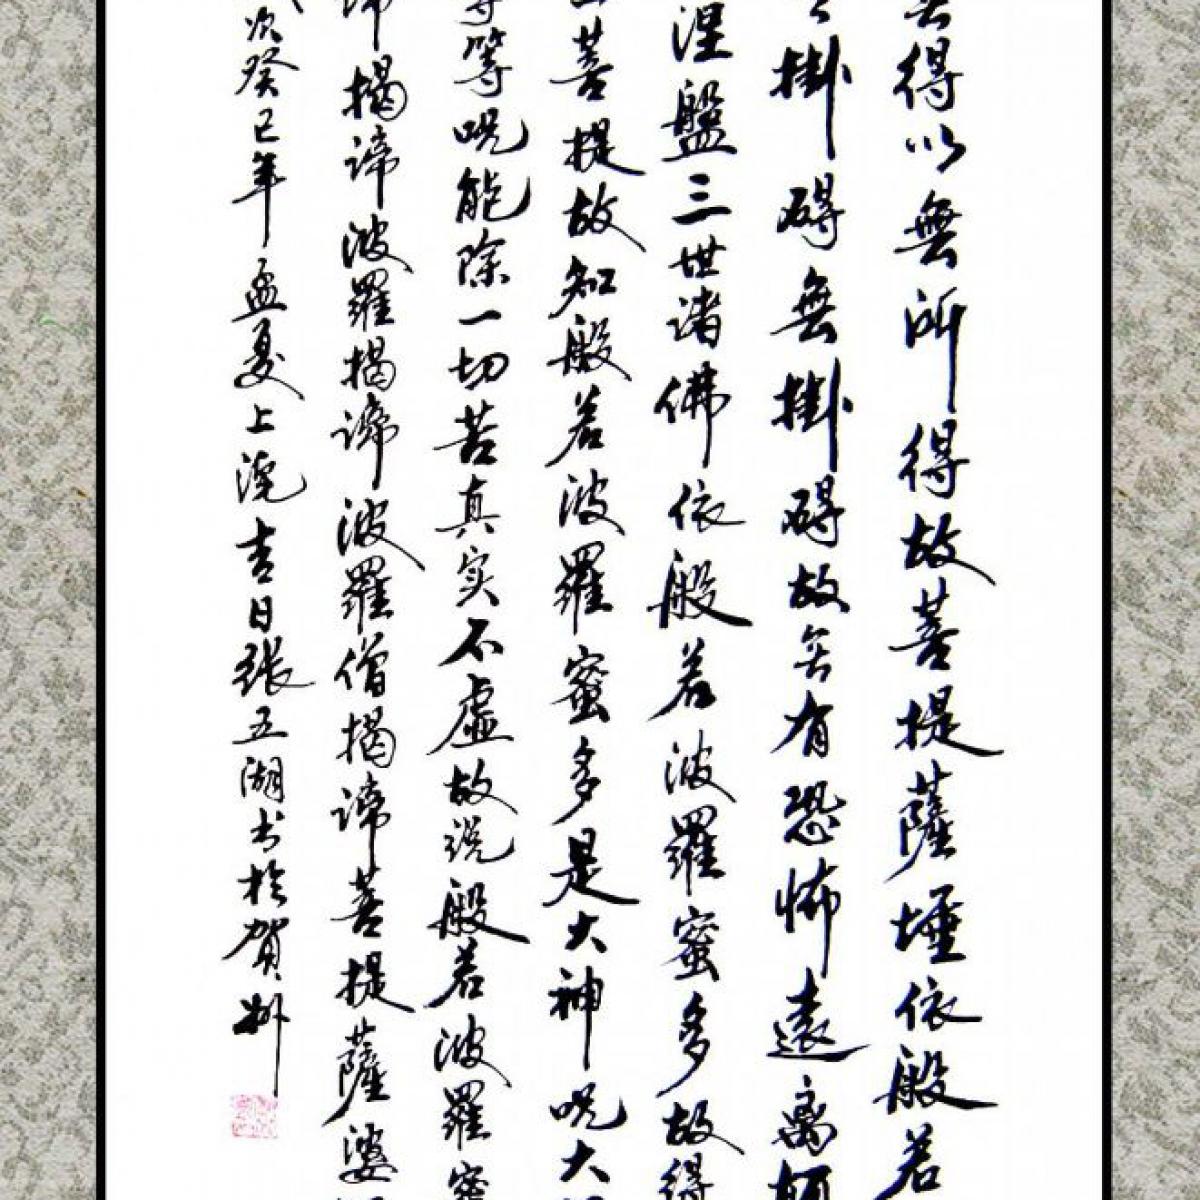 無得以無所得故菩提薩埵依般若
掛碍無掛碍故無有恐怖遠离顛
涅盤三世诸佛依般若波羅蜜多故得
菩提故知般若波羅蜜多是大神咒大
等等咒能除一切苦真实不虛故说般若波羅蜜
諦揭諦波羅揭諦波羅僧揭諦菩提薩婆
次癸巳年孟夏上浣吉日张五湖书於贺州